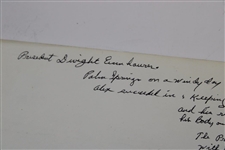 President Dwight Eisenhower.
Palm Springs on a windy day
alex succeeded in a keeping
and his
his body on
The
with